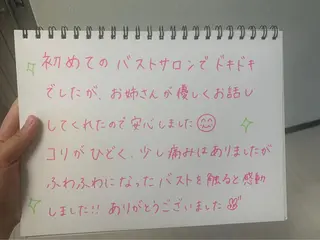 初めてのバストサロンでドキドキ
でしたが、お姉さんが優しくお話し
してくれたので安心しました
コリがひどく、少し痛みはありましたが
ふわふわになったバストを触ると感動
しました!! ありがとうございました